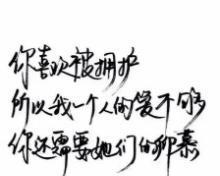 你喜欢被拥护
所以我一个人的爱不够
你还需要她们的仰慕